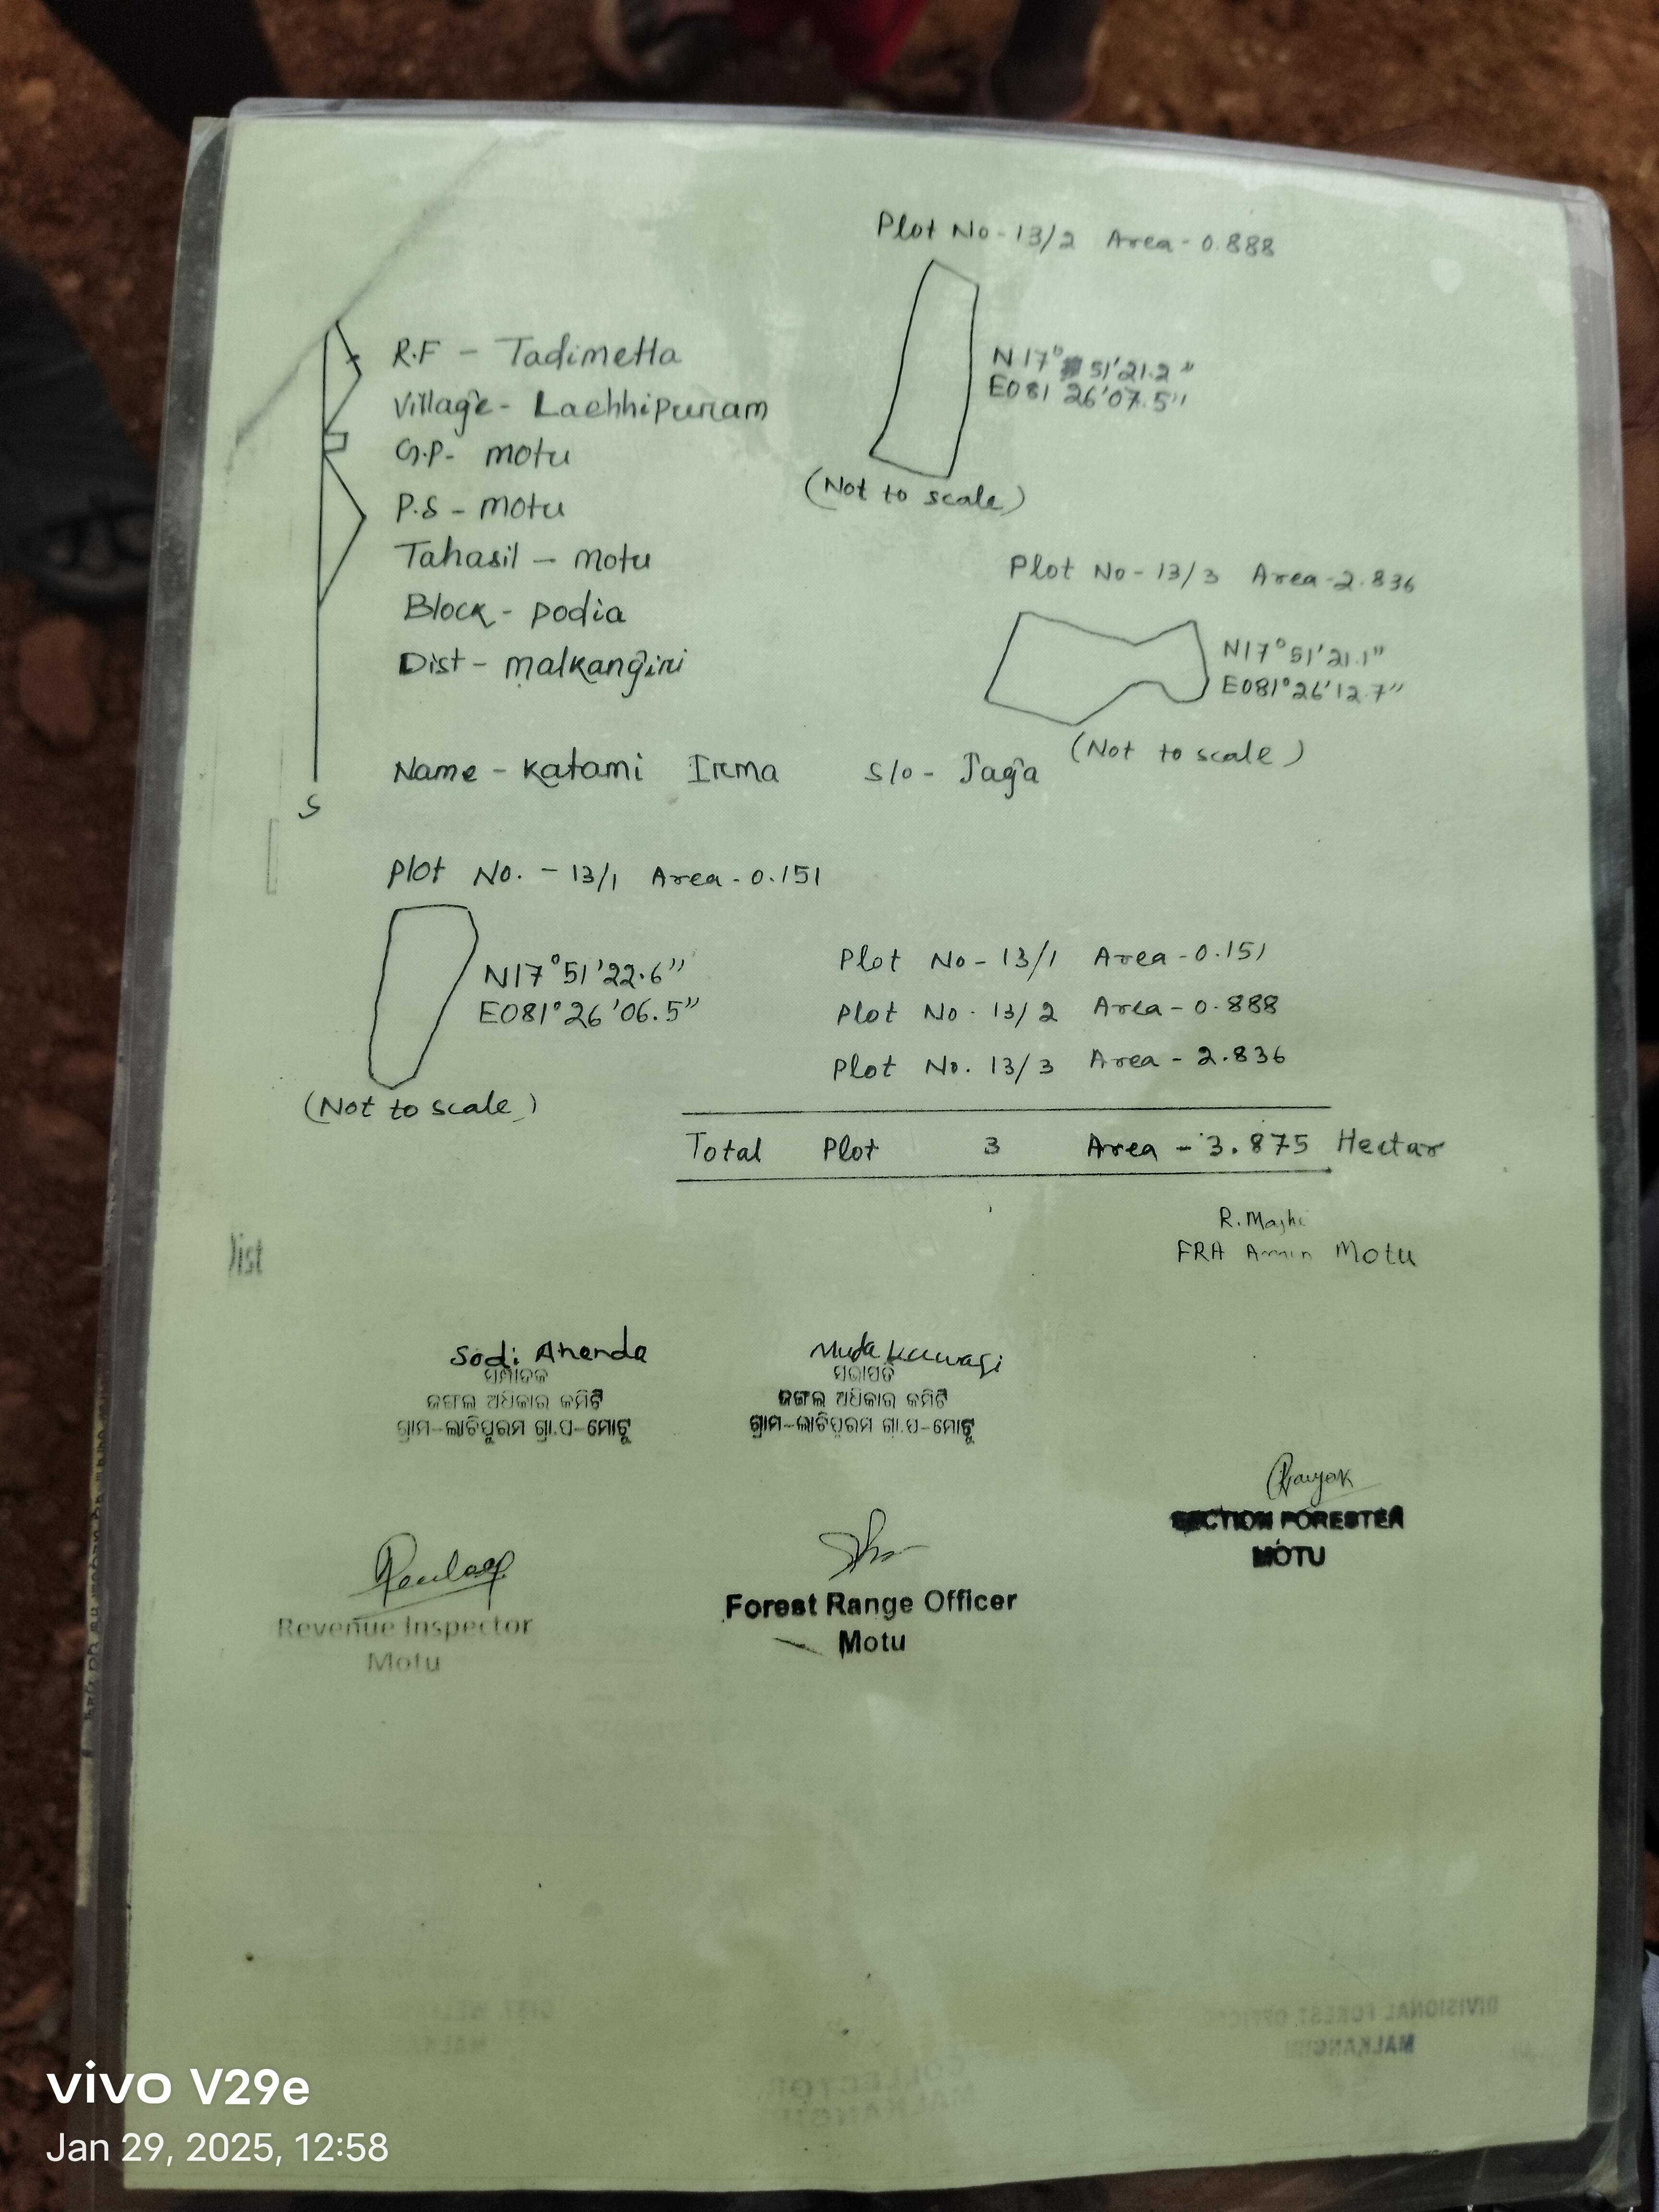 Plot No-13/2 Area-0.888
N17° 51'21.2"
E081 26'07.5"
(Not to scale)
R.F - Tadimetta
Village- Lachhipuram
G.P- motu
P.S - motu
Tahasil - motu
Block - podia
Dist - malkangiri
Plot No-13/3 Area-2.836
N17°51'21.1"
E081°26'12.7"
(Not to scale)
Name - Katami Irma S/o - Jaga
S
Plot No. - 13/1 Area-0.151
N17°51'22.6"
E081°26'06.5"
(Not to scale)
Plot No-13/1 Area-0.151
Plot No. 13/2 Area-0.888
Plot No. 13/3 Area-2.836
Total Plot 3 Area-3.875 Hectar
R. Majhi
FRA Amin Motu
list
Sodi Ananda
ସମ୍ପାଦକ
ଜଙ୍ଗଲ ଅଧିକାର କମିଟି
ଗ୍ରାମ-ଲାଚିପୁରମ ଗ୍ରା.ପ-ମୋଟୁ
Muda Kawasi
ସଭାପତି
ଜଙ୍ଗଲ ଅଧିକାର କମିଟି
ଗ୍ରାମ-ଲାଚିପୁରମ ଗ୍ରା.ପ-ମୋଟୁ
SECTION FORESTER
MOTU
Revenue Inspector
Motu
Forest Range Officer
Motu
DIVISIONAL FOREST OFFICER
MALKANGIRI
COLLECTOR
MALKANGIRI
vivo V29e
Jan 29, 2025, 12:58